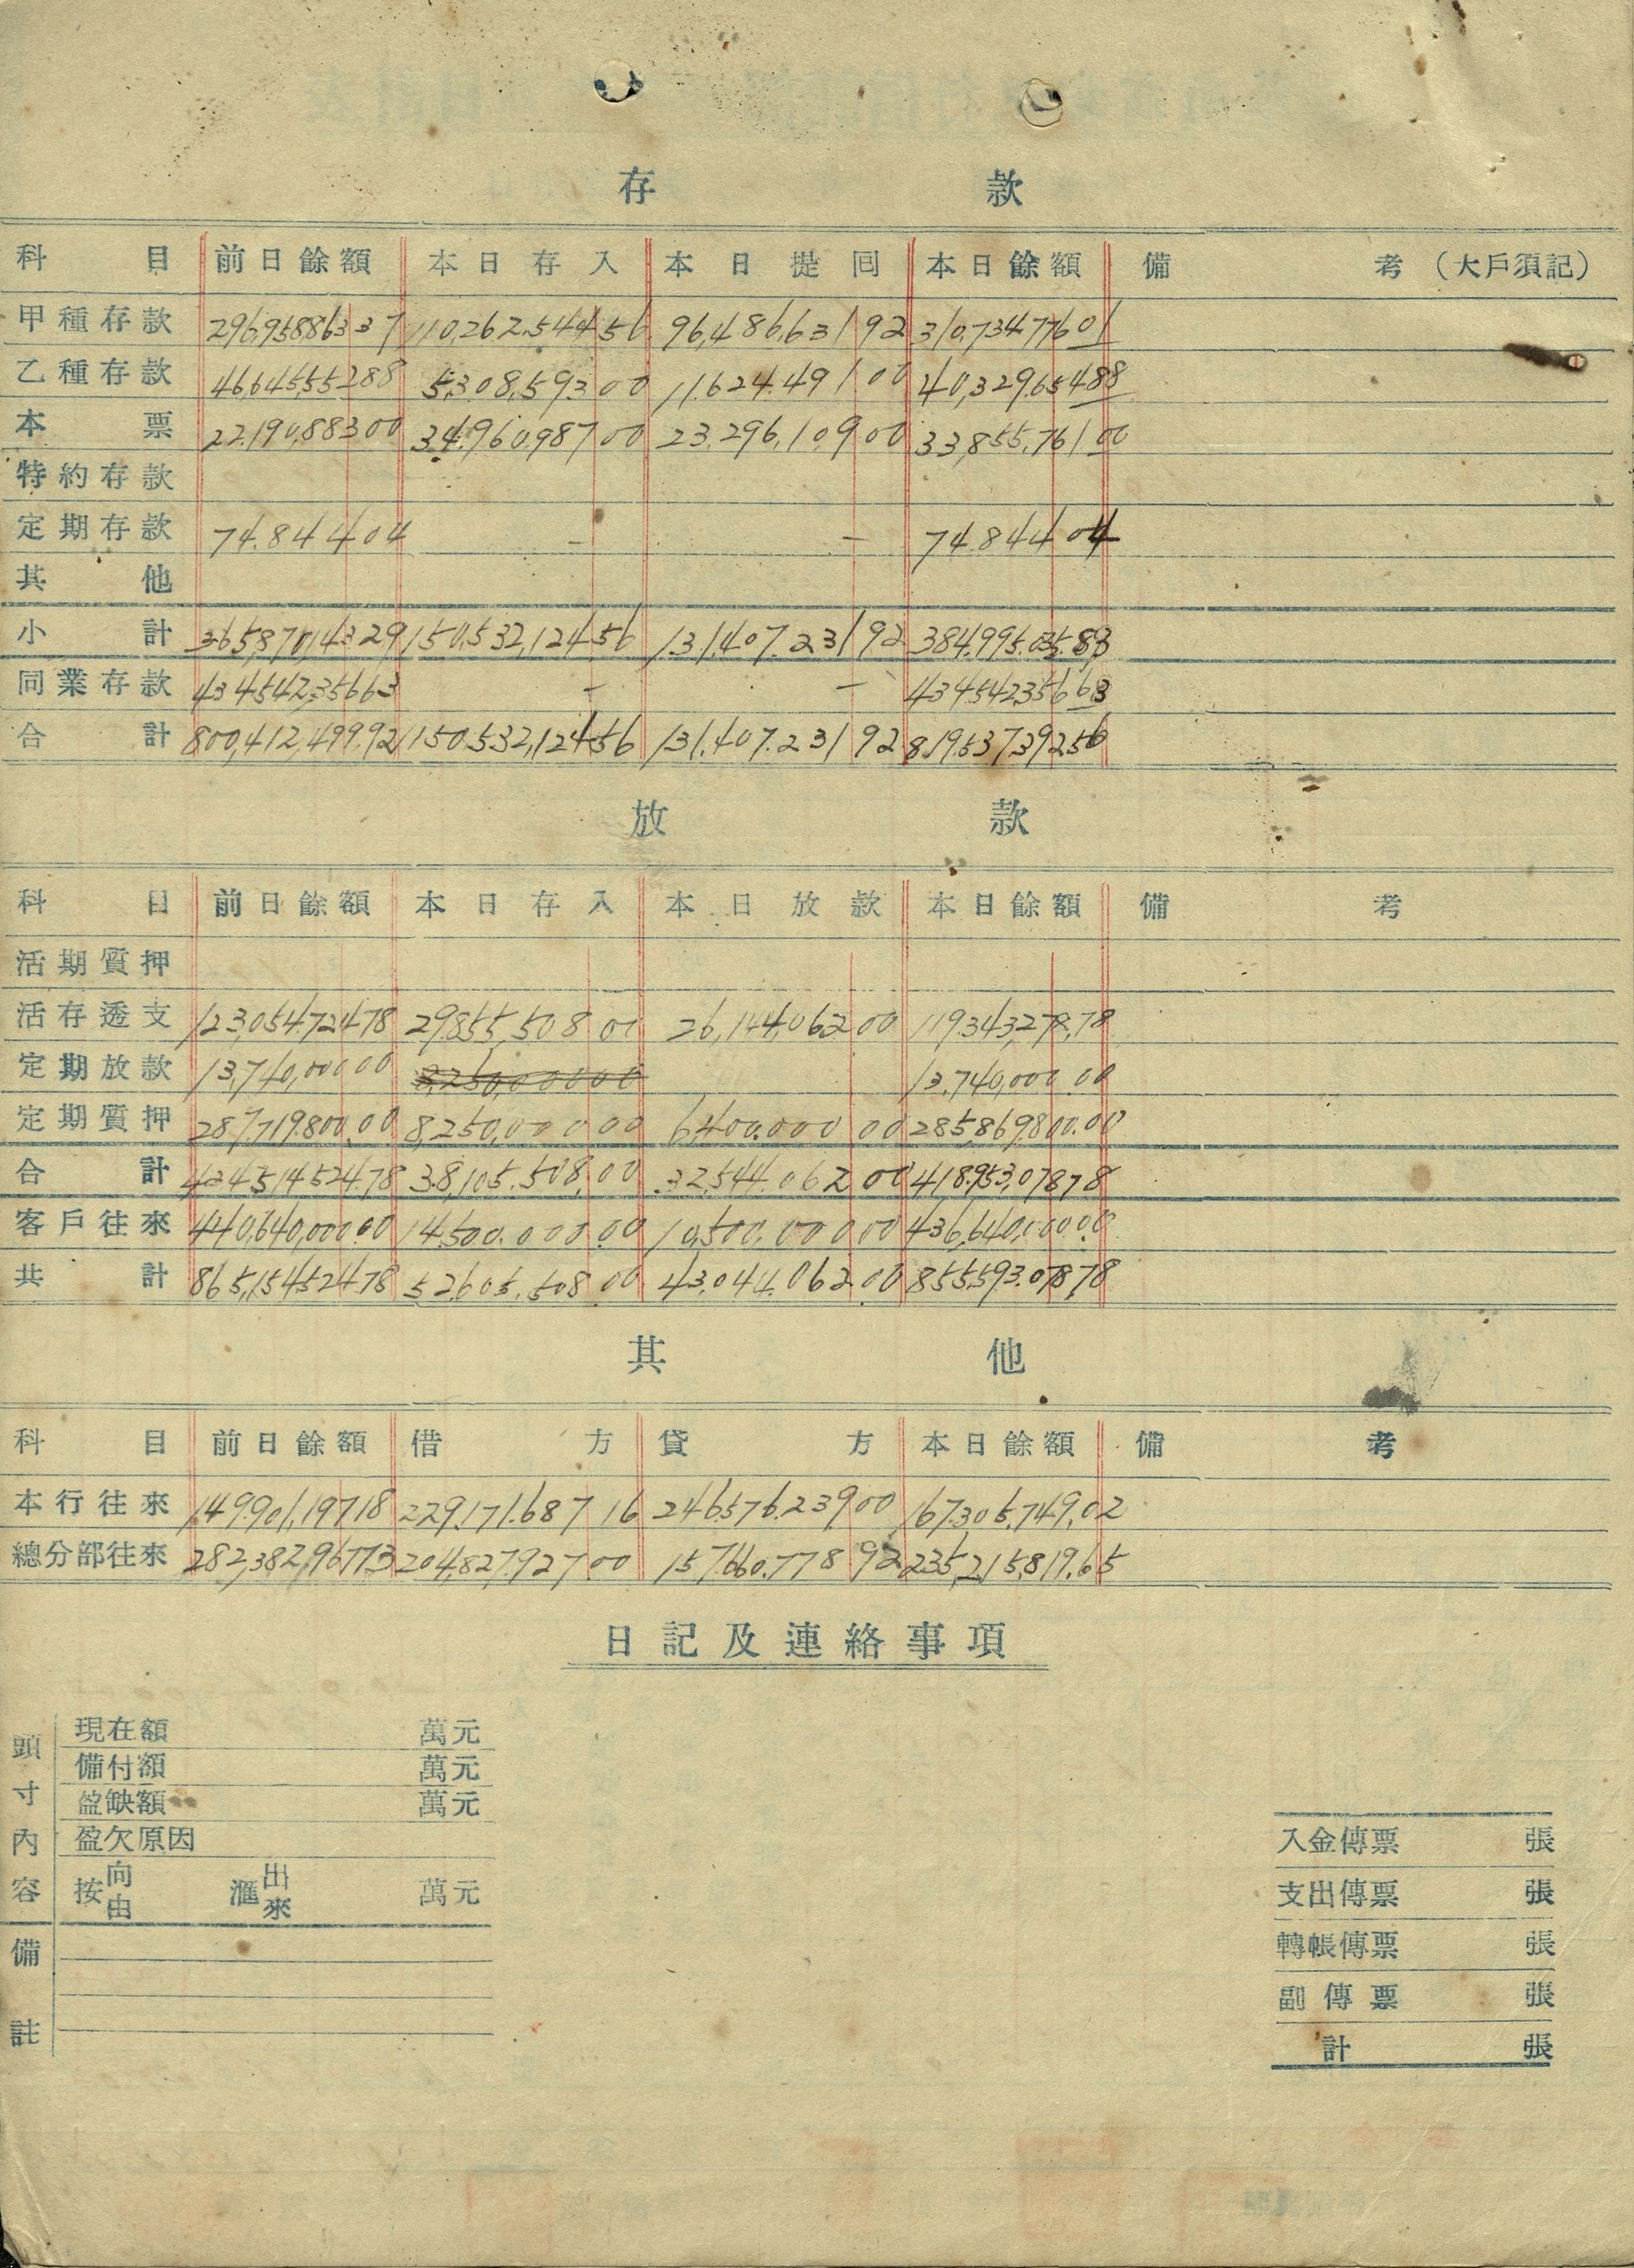 存 款
科目 前日餘額 本日存入 本日提回 本日餘額 備考（大戶須記）
甲種存款 296,958,863 37 110,262,544 56 96,486,631 92 310,734,776 01
乙種存款 46,645,552 88 5,308,593 00 11,624,491 00 40,329,654 88
本票 22,190,883 00 34,960,987 00 23,296,109 00 33,855,761 00
特約存款
定期存款 74,844 04 — — 74,844 04
其他
小計 365,870,143 29 150,532,124 56 131,407,231 92 384,995,035.83
同業存款 434,542,356 63 — — 434,542,356 63
合計 800,412,499.92 150,532,124 56 131,407,231 92 819,537,392 56
放 款
科目 前日餘額 本日存入 本日放款 本日餘額 備考
活期質押
活存透支 123,054,724 78 29,855,508 00 26,144,062 00 119,343,278.78
定期放款 13,740,000 00 8,250,000 00 13,740,000 00
定期質押 287,719,800.00 8,250,000 00 6,400,000 00 285,869,800.00
合計 424,514,524.78 38,105,508.00 32,544,062 00 418,953,078 78
客戶往來 440,640,000.00 14,500,000.00 10,500,000 00 436,640,000.00
共計 865,154,524.78 52,605,508.00 43,044,062.00 855,593,078.78
其 他
科目 前日餘額 借方 貸方 本日餘額 備考
本行往來 149,901,197 18 229,171,687 16 246,576,239 00 167,305,749.02
總分部往來 282,382,967 73 204,827,927 00 157,660,778 92 235,215,819.65
日記及連絡事項
頭寸內容
現在額 萬元
備付額 萬元
盈缺額 萬元
盈欠原因
按向由 滙出來 萬元
備註
入金傳票 張
支出傳票 張
轉帳傳票 張
副傳票 張
計 張